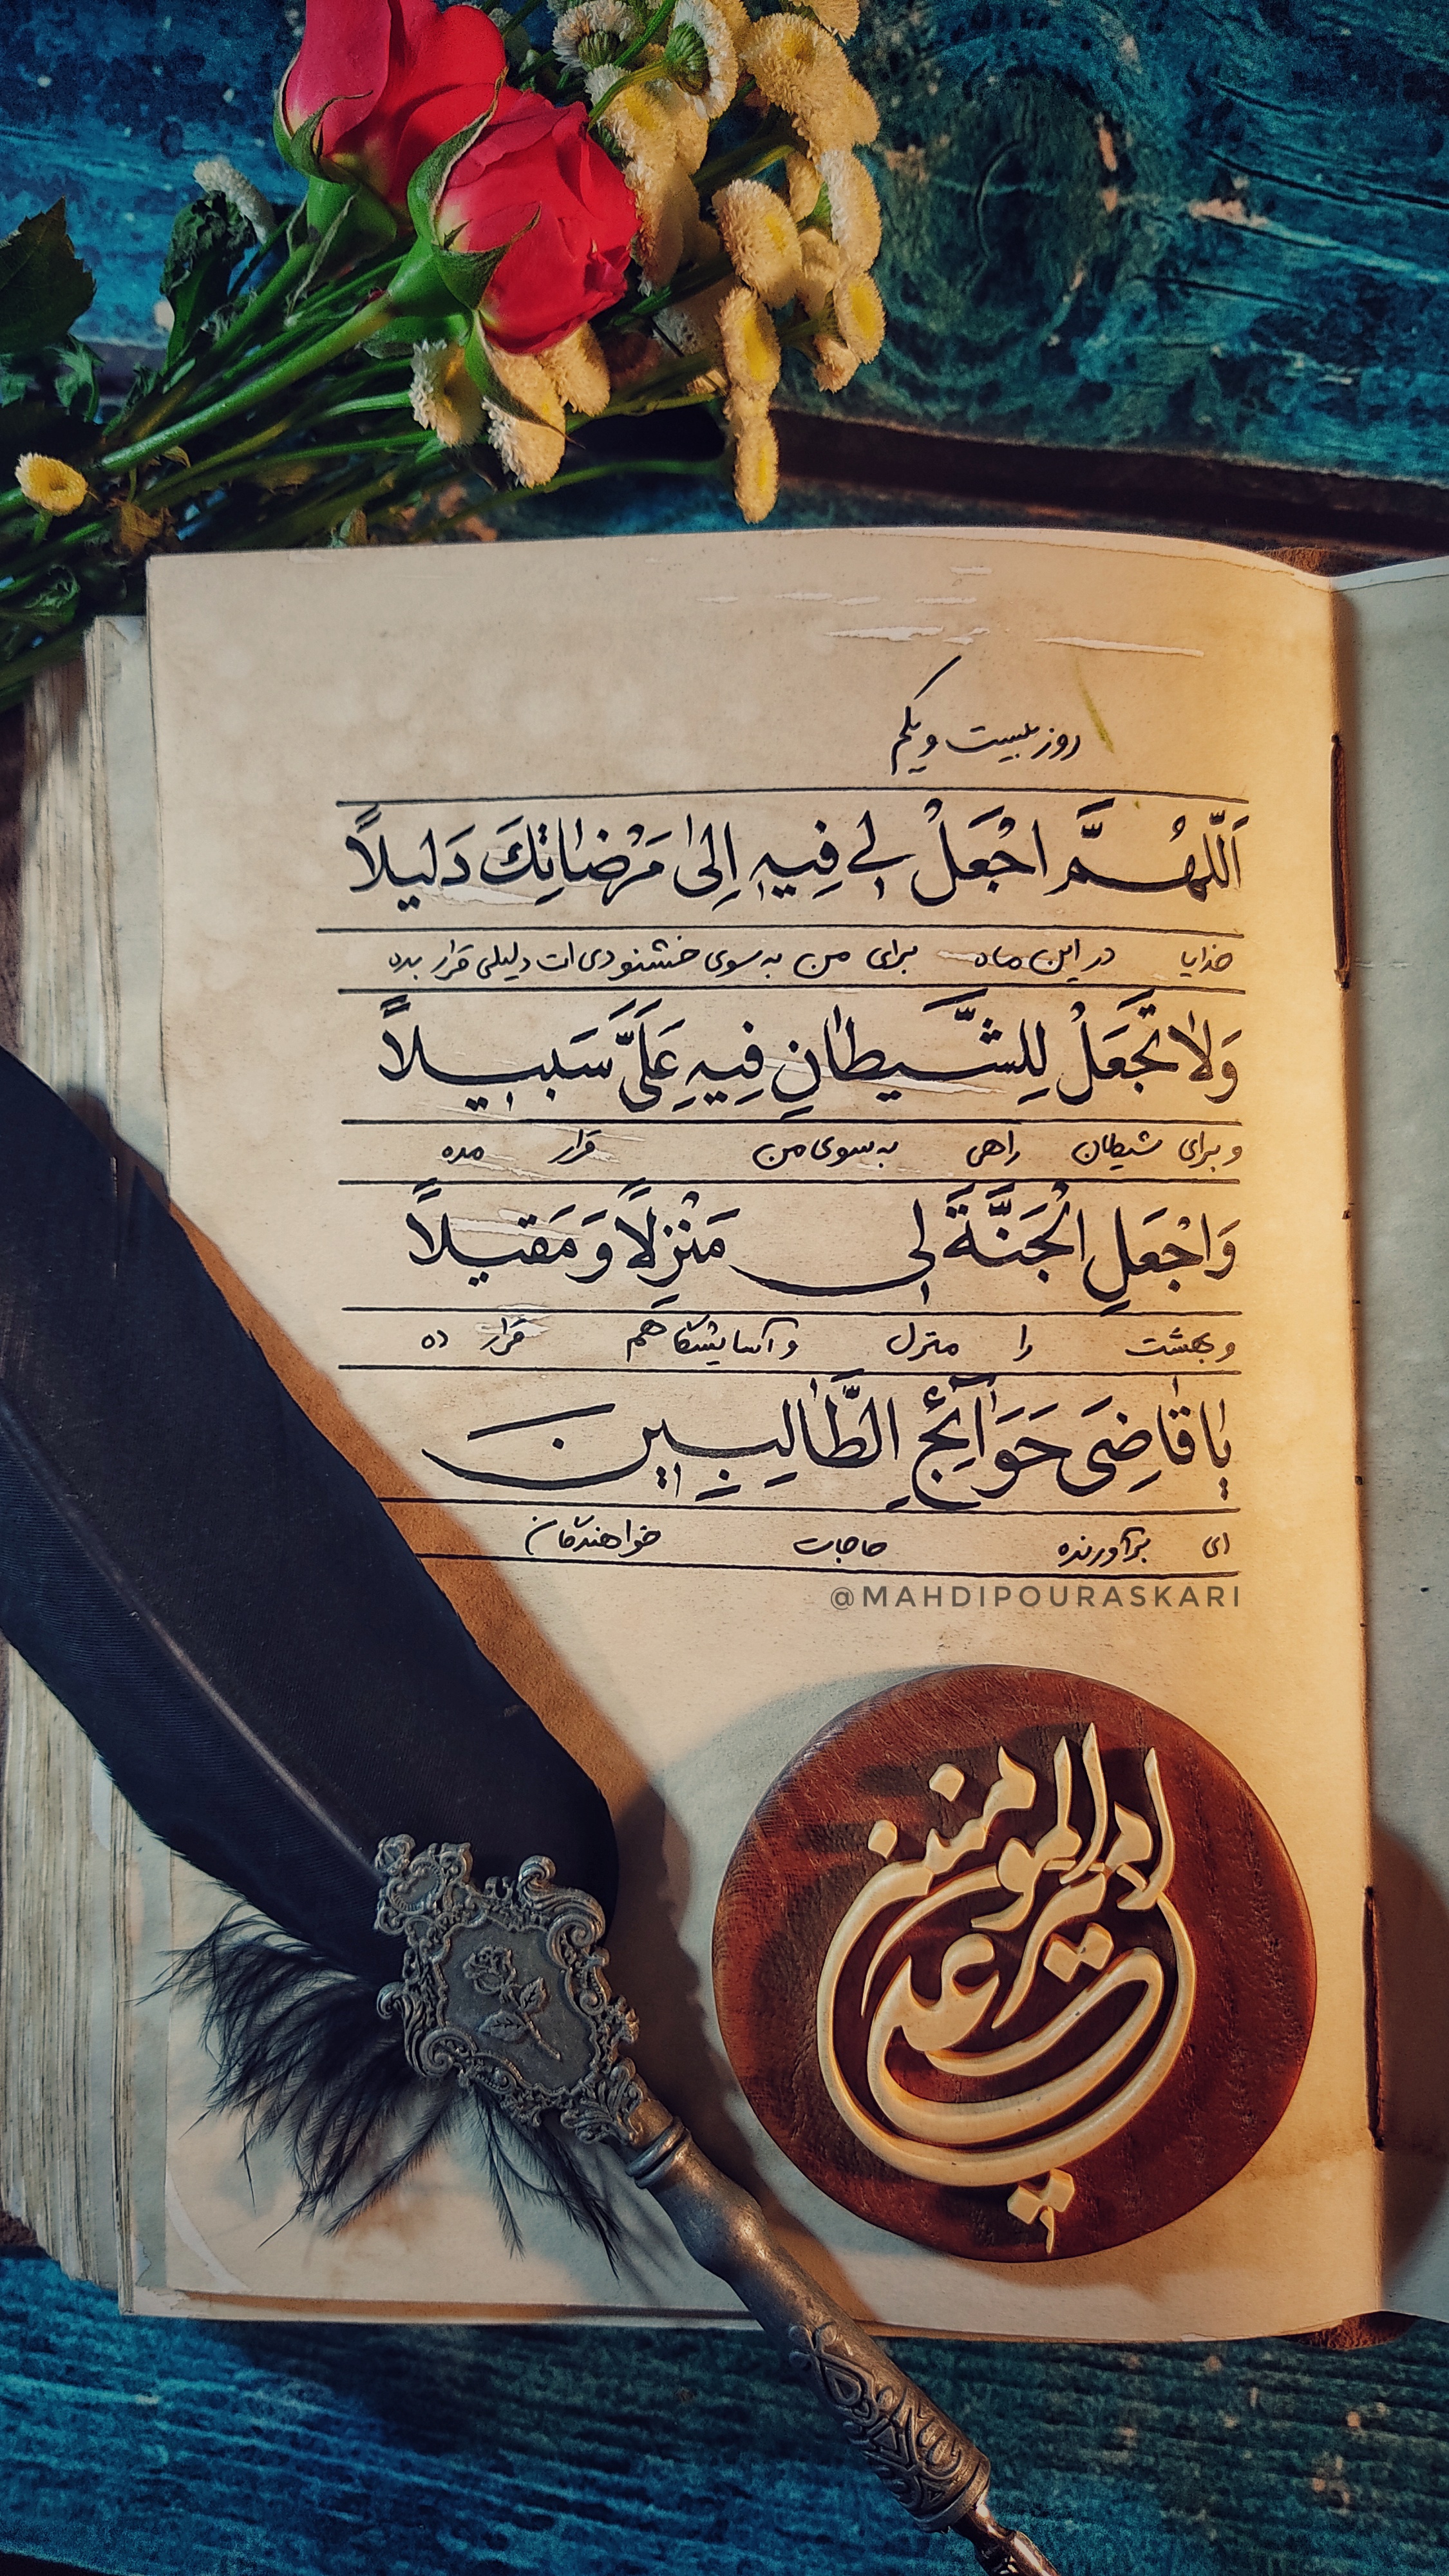 روز بیست و یکم
اَللّهُمَّ اجْعَلْ لي فِيهِ اِلىٰ مَرْضاتِكَ دَليلاً
خدایا در این ماه برای من به سوی خشنودی ات دلیلی قرار بده
وَلا تَجْعَلْ لِلشَّيْطانِ فِيهِ عَلَىَّ سَبيلاً
و برای شیطان راهی به سوی من قرار مده
وَاجْعَلِ الْجَنَّةَ لي مَنْزِلاً وَ مَقيلاً
و بهشت را منزل و آسایشگاهم قرار ده
يا قاضِىَ حَوَآئِجِ الطّالِبينَ
ای برآورنده حاجات خواهندگان
@MAHDIPOURASKARI
امیرالمومنین علی